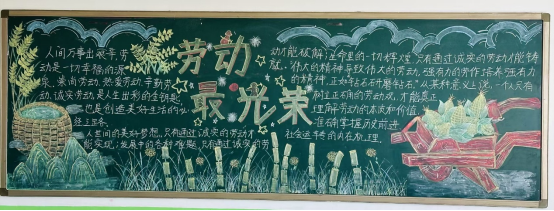 人间万事出艰辛,劳
动是一切幸福的源
泉。崇尚劳动、热爱劳动、辛勤劳
动、诚实劳动,是人生出彩的金钥匙,
也是创造美好生活的必
经之路。
人世间的美好梦想,只有通过诚实的劳动才
能实现;发展中的各种难题,只有通过诚实的劳
劳动
最光荣
动才能破解;生命里的一切辉煌,只有通过诚实的劳动才能铸
就。"伟大的精神导致伟大的劳动,强有力的劳作培养强有力
的精神,正如钻石在研磨钻石。"从某种意义上说,一个人只有
树立正确的劳动观,才能真正
理解劳动的本质和价值,
准确掌握历史前进
社会运动的内在机理。